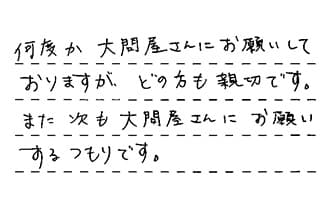 何度か 大問屋さんにお願いして
おりますが、どの方も親切です。
また次も大問屋さんに お願い
するつもりです。